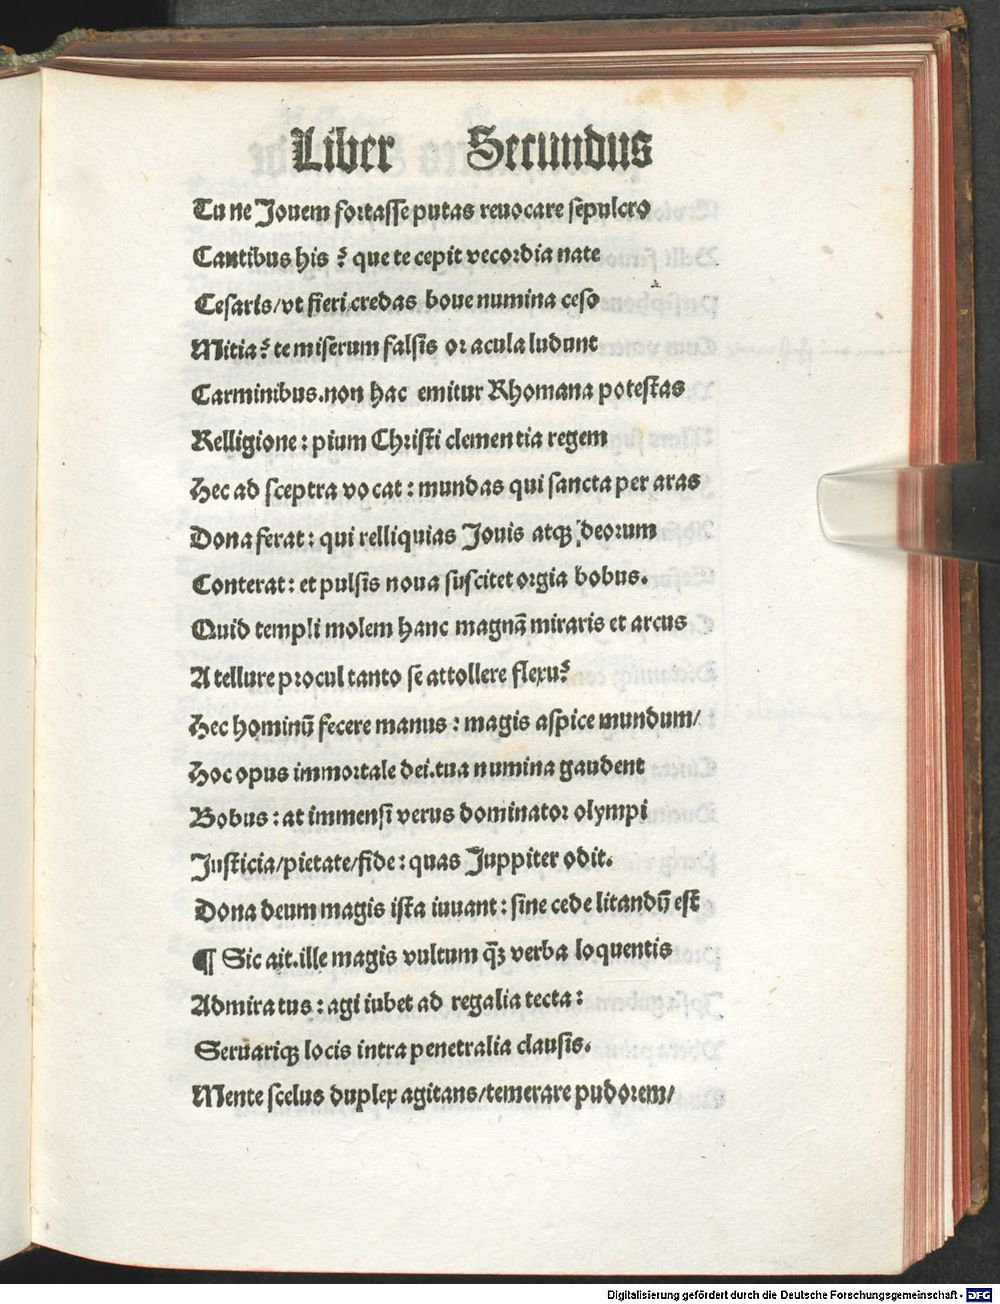 Liber Secundus
Tu ne Jouem fortasse putas reuocare sepulcro
Cantibus his ? que te cepit vecordia nate
Cesaris/vt fieri credas boue numina ceso
Mitia? te miserum falsis or acula ludunt
Carminibus.non hac emitur Rhomana potestas
Relligione : pium Christi clementia regem
Hec ad sceptra vocat : mundas qui sancta per aras
Dona ferat : qui relliquias Jouis atqꝫ deorum
Conterat : et pulsis noua suscitet orgia bobus.
Quid templi molem hanc magnā miraris et arcus
A tellure procul tanto se attollere flexu?
Hec hominū fecere manus : magis aspice mundum/
Hoc opus immortale dei.tua numina gaudent
Bobus : at immensi verus dominator olympi
Justicia/pietate/fide : quas Juppiter odit.
Dona deum magis ista iuuant : sine cede litandū est
¶ Sic ait.ille magis vultum q̄ꝫ verba loquentis
Admiratus : agi iubet ad regalia tecta :
Seruariqꝫ locis intra penetralia clausis.
Mente scelus duplex agitans/temerare pudorem/
Digitalisierung gefördert durch die Deutsche Forschungsgemeinschaft - DFG